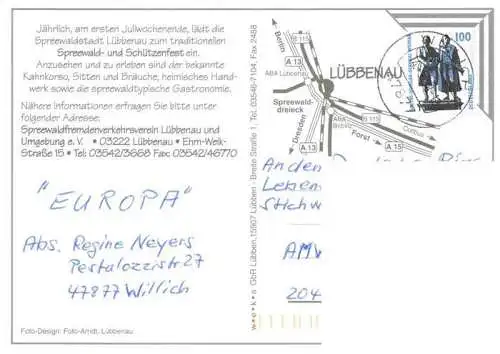 Jährlich, am ersten Juliwochenende, lädt die
Spreewaldstadt Lübbenau zum traditionellen
Spreewald- und Schützenfest ein.
Anzusehen und zu erleben sind der bekannte
Kahnkorso, Sitten und Bräuche, heimisches Hand-
werk sowie die spreewaldtypische Gastronomie.
Nähere Informationen erfragen Sie bitte unter
folgender Adresse:
Spreewaldfremdenverkehrsverein Lübbenau und
Umgebung e. V. • 03222 Lübbenau • Ehm-Welk-
Straße 15 • Tel: 03542/3668 Fax 03542/46770
"EUROPA"
Abs. Regine Neyers
Pestalozzistr 27
47877 Willich
Foto-Design: Foto-Arndt, Lübbenau
w•e•k•a GbR Lübben, 15907 Lübben • Breite Straße 1, Tel. 03546-7104, Fax 7488
Berlin
B 115
A 13
ABA Lübbenau
LÜBBENAU
Spreewald-
dreieck
Dresden
A 13
Forst
A 15
Cottbus
100
An den
Leben
Stichw
AMV
204